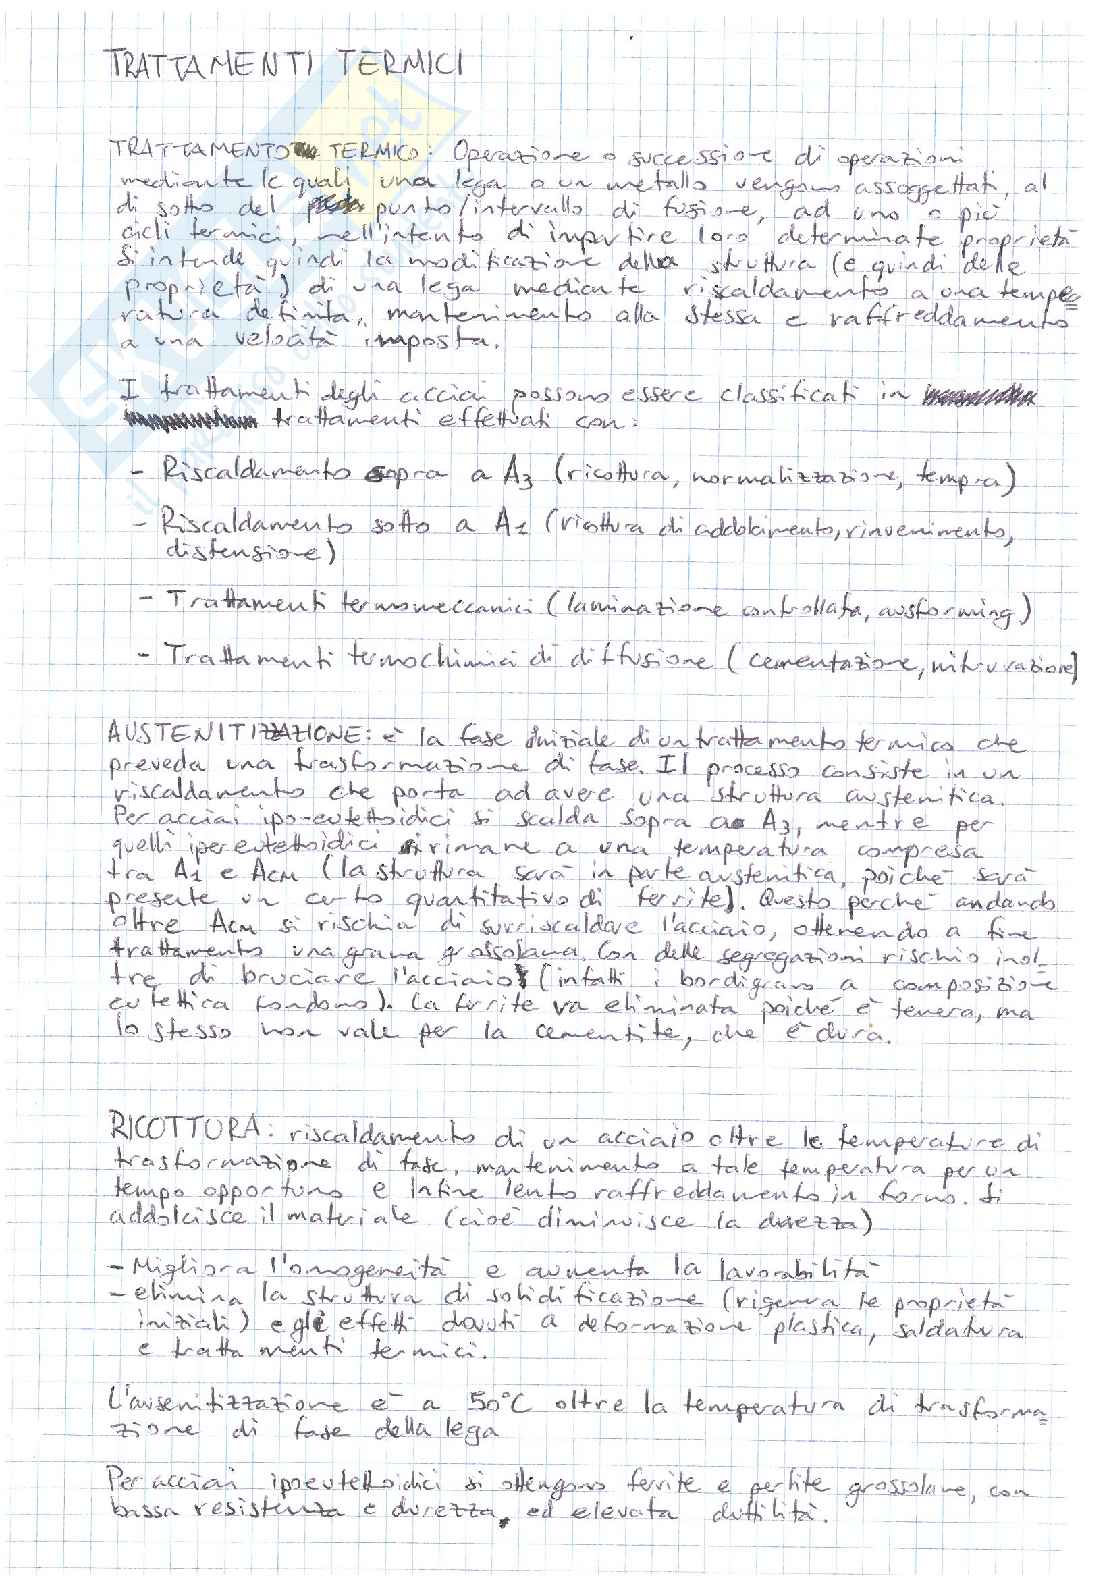 TRATTAMENTI TERMICI
TRATTAMENTO TERMICO: Operazione o successione di operazioni
mediante le quali una lega o un metallo vengono assoggettati, al
di sotto del punto/intervallo di fusione, ad uno o più
cicli termici, nell'intento di impartire loro determinate proprietà
Si intende quindi la modificazione della struttura (e quindi delle
proprietà) di una lega mediante riscaldamento a una tempe=
ratura definita, mantenimento alla stessa e raffreddamento
a una velocità imposta.
I trattamenti degli acciai possono essere classificati in
trattamenti effettuati con:
- Riscaldamento sopra a A3 (ricottura, normalizzazione, tempra)
- Riscaldamento sotto a A1 (ricottura di addolcimento, rinvenimento,
distensione)
- Trattamenti termomeccanici (laminazione controllata, ausforming)
- Trattamenti termochimici di diffusione (cementazione, nitrurazione)
AUSTENITIZZAZIONE: è la fase iniziale di un trattamento termico che
preveda una trasformazione di fase. Il processo consiste in un
riscaldamento che porta ad avere una struttura austenitica.
Per acciai ipo-eutettoidici si scalda sopra a A3, mentre per
quelli ipereutettoidici si rimane a una temperatura compresa
tra A1 e Acm (la struttura sarà in parte austenitica, poiché sarà
presente un certo quantitativo di ferrite). Questo perché andando
oltre Acm si rischia di surriscaldare l'acciaio, ottenendo a fine
trattamento una grana grossolana. Con delle segregazioni rischio inol=
tre di bruciare l'acciaio (infatti i bordi grano a composizione
eutettica fondono). La ferrite va eliminata poiché è tenera, ma
lo stesso non vale per la cementite, che è dura.
RICOTTURA: riscaldamento di un acciaio oltre le temperature di
trasformazione di fase, mantenimento a tale temperatura per un
tempo opportuno e infine lento raffreddamento in forno. Si
addolcisce il materiale (cioè diminuisce la durezza)
- Migliora l'omogeneità e aumenta la lavorabilità
- elimina la struttura di solidificazione (rigenera le proprietà
iniziali) e gli effetti dovuti a deformazione plastica, saldatura
e trattamenti termici.
L'ausenitizzazione è a 50°C oltre la temperatura di trasforma=
zione di fase della lega
Per acciai ipoeutettoidici si ottengono ferrite e perlite grossolane, con
bassa resistenza e durezza, ed elevata duttilità.